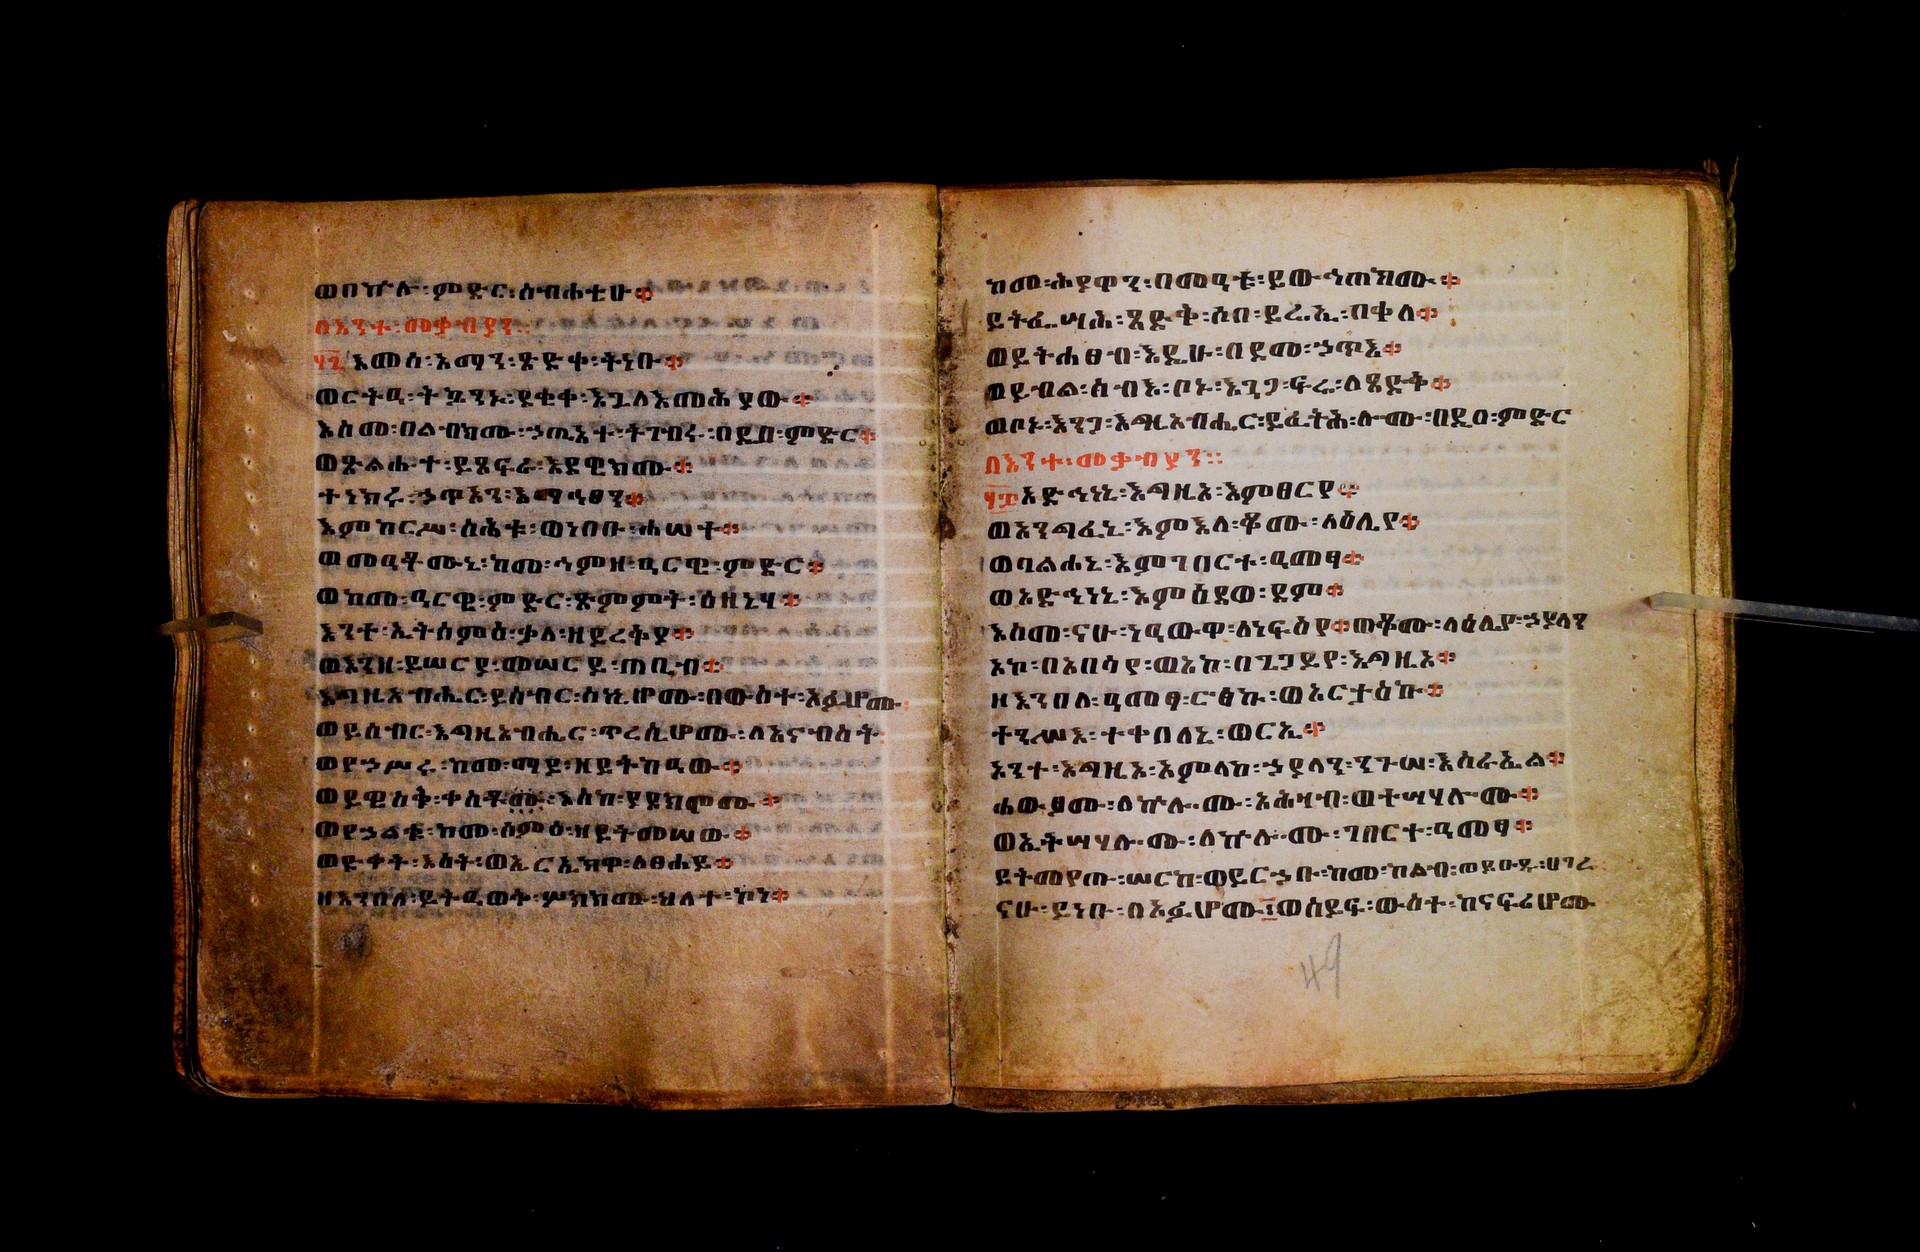 ወበኵሉ ፡ ምድር ፡ ስብሐቲሁ ።
በእንተ ፡ መቃብያን ።
፶፯ እመሰ ፡ አማን ፡ ጽድቀ ፡ ትነቡ ።
ወርትዒ ፡ ትኴንኑ ፡ ደቂቀ ፡ እጓለእመሕያው ።
እስመ ፡ በልብክሙ ፡ ኃጢአተ ፡ ትገብሩ ፡ በዲበ ፡ ምድር ።
ወጽልሑተ ፡ ይጸፍራ ፡ እደዊክሙ ።
ተነክሩ ፡ ኃጥአን ፡ እማኅፀን ።
እምከርሥ ፡ ስሕቱ ፡ ወነበቡ ፡ ሐሠተ ።
ወመዓትሙኒ ፡ ከመ ፡ ኅምዘ ፡ ዓርዌ ፡ ምድር ።
ወከመ ፡ ዓርዌ ፡ ምድር ፡ ጽምምት ፡ ዕዘኒሃ ።
እንተ ፡ ኢትሰምዕ ፡ ቃለ ፡ ዘይረቅያ ።
ወእንዘ ፡ ይሠርያ ፡ መሠርይ ፡ ጠቢብ ።
እግዚአብሔር ፡ ይሰብር ፡ ስነኒሆሙ ፡ በውስተ ፡ አፉሆሙ ።
ወይሰብር ፡ እግዚአብሔር ፡ ጥረሲሆሙ ፡ ለአናብስት ።
ወየኃሥሩ ፡ ከመ ፡ ማይ ፡ ዘይትከዓው ።
ወይዌስቅ ፡ ቀስቶሙ ፡ እስከ ፡ ያደክሞሙ ።
ወየኃልቁ ፡ ከመ ፡ ሰምዕ ፡ ዘይትመሠው ።
ወድቀት ፡ እሳት ፡ ወኢርኢክዋ ፡ ለፀሐይ ።
ዘእንበለ ፡ ይትዐወቅ ፡ ሦክክሙ ፡ ሕለተ ፡ ኮነ ።
ከመ ፡ ሕያዋን ፡ በመዓቱ ፡ ይውኅጠክሙ ።
ይትፌሣሕ ፡ ጻድቅ ፡ ሶበ ፡ ይሬኢ ፡ በቀለ ።
ወይትሐፀብ ፡ እዴሁ ፡ በደመ ፡ ኃጥእ ።
ወይብል ፡ ሰብእ ፡ ቦኑ ፡ እንጋ ፡ ፍሬ ፡ ለጻድቅ ።
ወቦኑ ፡ እንጋ ፡ እግዚአብሔር ፡ ይፈትሕ ፡ ሎሙ ፡ በዲበ ፡ ምድር
በእንተ ፡ መቃብያን ።
፶፰ አድኅነኒ ፡ እግዚኦ ፡ እምፀርየ ።
ወአንግፈኒ ፡ እምእለ ፡ ቆሙ ፡ ላዕሌየ ።
ወባልሐኒ ፡ እምገበርተ ፡ ዓመፃ ።
ወአድኅነኒ ፡ እምዕደወ ፡ ደም ።
እስመ ፡ ናሁ ፡ ነዓውዋ ፡ ለነፍስየ ። ወቆሙ ፡ ላዕሌየ ፡ ኃያላን
አኮ ፡ በአበሳየ ፡ ወአኮ ፡ በጌጋይየ ፡ እግዚኦ ።
ዘእንበለ ፡ ዓመፃ ፡ ርፅኩ ፡ ወአርታዕኩ ።
ተንሥእ ፡ ተቀበለኒ ፡ ወርኢ ።
አንተ ፡ እግዚኦ ፡ አምላከ ፡ ኃያላን ፡ ንጉሠ ፡ እስራኤል ።
ሐውፆሙ ፡ ለኵሎሙ ፡ አሕዛብ ፡ ወተሣሃሎሙ ።
ወኢትሣሃሎሙ ፡ ለኵሎሙ ፡ ገበርተ ፡ ዓመፃ ።
ይትመየጡ ፡ ሠርከ ፡ ወይርኃቡ ፡ ከመ ፡ ከልብ ፡ ወይዑዱ ፡ ሀገረ
ናሁ ፡ ይነቡ ፡ በአፉሆሙ ። ወሰይፍ ፡ ውስተ ፡ ከናፍሪሆሙ
49